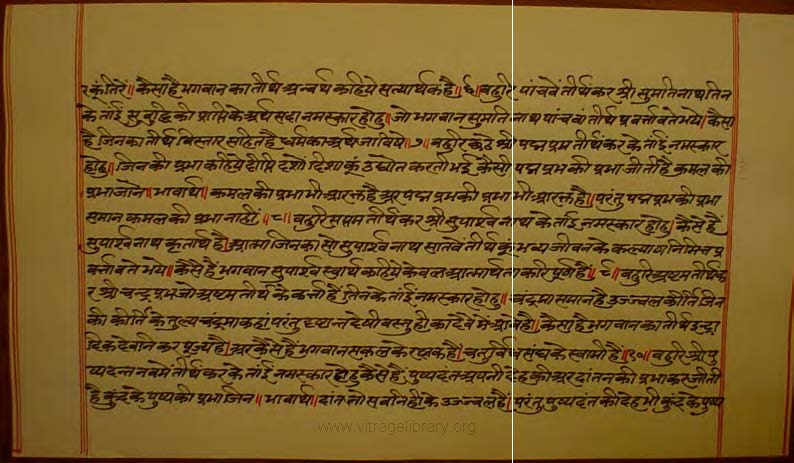 र कूं तिरें॥ कैसा है भगवान का तीर्थ अन्वर्थ कहिये सत्यार्थक है॥ ६॥ बहुरि पांचवें तीर्थंकर श्री सुमतिनाथ तिन
के तांई सुबुद्धि की प्राप्ति के अर्थ सदा नमस्कार होहु॥ जो भगवान सुमतिनाथ पांचवां तीर्थ प्रवर्त्तावते भये॥ कैसा
है जिनका तीर्थ विस्तार सहित है धर्म का अर्थ जा विषै॥ ७॥ बहुरि छठे श्री पद्मप्रभ तीर्थंकर के तांई नमस्कार
होहु॥ जिनकी प्रभा कहिये दीप्ति दशों दिशा कूं उद्योत करती भई कैसी पद्मप्रभ की प्रभा जीती है कमल की
प्रभा जाने॥ भावार्थ॥ कमल की प्रभा भी आरक्त है अर पद्मप्रभ की प्रभा भी आरक्त है॥ परंतु पद्मप्रभ की प्रभा
समान कमल की प्रभा नाहीं॥ ८॥ बहुरि सप्तम तीर्थंकर श्री सुपार्श्वनाथ के तांई नमस्कार होहु॥ कैसे हैं
सुपार्श्वनाथ कृतार्थ है आत्मा जिनका सो सुपार्श्वनाथ सातवें तीर्थ कूं भव्य जीवन के कल्याण निमित्त प्र
वर्त्तावते भये॥ कैसे हैं भगवान सुपार्श्व स्वार्थ कहिये केवल आत्मार्थ ता करि पूर्ण हैं॥ ९॥ बहुरि अष्टम तीर्थंक
र श्री चन्द्रप्रभ जो अष्टम तीर्थ के कर्त्ता हैं तिन के तांई नमस्कार होहु॥ चंद्रमा समान है उज्ज्वल कीर्ति जिन
की कीर्ति के तुल्य चंद्रमा कहां परंतु दृष्टान्त देयी वस्तु ही का देवे में आवै है॥ कैसा है भगवान का तीर्थ इन्द्रा
दिक देवनि कर पूज्य है॥ अर कैसे हैं भगवान सकल के रक्षक हैं॥ चतुर्विध संघ के स्वामी हैं॥ १०॥ बहुरि श्री पु
ष्पदन्त नवमे तीर्थंकर के तांई नमस्कार होहु कैसे हैं पुष्पदंत अपनी देह की अर दांतन की प्रभा कर जीती
है कुंद के पुष्प की प्रभा जिन॥ भावार्थ॥ दांत तो सबनि ही के उज्ज्वल हैं॥ परंतु पुष्पदंत की देह भी कुंद के पुष्प
www.vitragelibrary.org